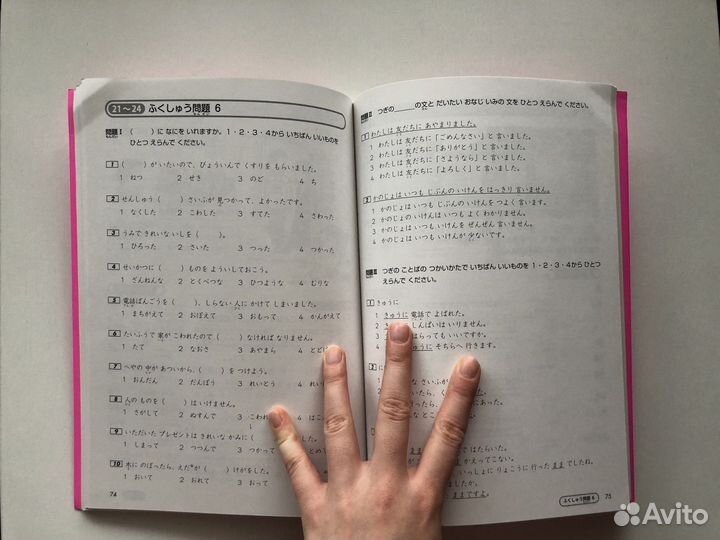 21~24 ふくしゅう問題 6
問題Ⅰ ( )に なにを いれますか。1・2・3・4から いちばん いいものを
ひとつ えらんで ください。
1 ( )が いたいので、びょういんで くすりを もらいました。
1 ねつ 2 せき 3 のど 4 ち
2 せんしゅう ( ) さいふが 見つかって、よかったです。
1 なくした 2 こわした 3 すてた 4 さわった
3 うみで きれいな いしを ( )。
1 ひろった 2 さいた 3 つった 4 つかった
4 せいかつに ( ) ものを よういしておこう。
1 ざんねんな 2 とくべつな 3 ひつような 4 むりな
5 電話ばんごうを ( )、しらない 人に かけて しまいました。
1 まちがえて 2 おぼえて 3 おもって 4 かんがえて
6 たいふうで 家が こわれたので ( ) なければ なりません。
1 たて 2 なおさ 3 あやまら 4 とど
7 へやの 中が あついから、( )を つけよう。
1 おんだん 2 だんぼう 3 れいとう 4 れい
8 人の ものを ( )は いけません。
1 さがして 2 ぬすんで 3 こわれ 4 はこ
9 いただいた プレゼントは きれいな かみに ( )
1 しまって 2 つつんで 3 つかって 4 とめ
10 木に のぼったら、えだが ( ) けがをした。
1 おいて 2 おれて 3 おって
74
問題Ⅱ つぎの______の文と だいたい おなじ いみの 文を ひとつ えらんで ください。
1 わたしは 友だちに あやまりました。
1 わたしは 友だちに「ごめんなさい」と 言いました。
2 わたしは 友だちに「ありがとう」と 言いました。
3 わたしは 友だちに「さようなら」と 言いました。
4 わたしは 友だちに「よろしく」と 言いました。
2 かのじょは いつも じぶんの いけんを はっきり 言いません。
1 かのじょは いつも いけんを つよく 言います。
2 かのじょの いけんは いつも よく わかりません。
3 かのじょは いつも いけんを ぜんぜん 言いません。
4 かのじょは いつも いけんが 少ないです。
問題Ⅲ つぎの ことばの つかいかたで いちばん いいものを 1・2・3・4から ひとつ
えらんで ください。
1 きゅうに
1 きゅうに 電話で よばれた。
2 しんぱいは いりません。
3 はらっても いいですか。
4 うに そちらへ 行きます。
2 に
な さいふが
いったら、
ったら、 に あった。
な とこ
3
で はたらいた。
かえってこない。
いっしょに りょこうに 行った ままでしたね。
ましたか。
ままですよ。
ふくしゅう問題 6 75
Avito